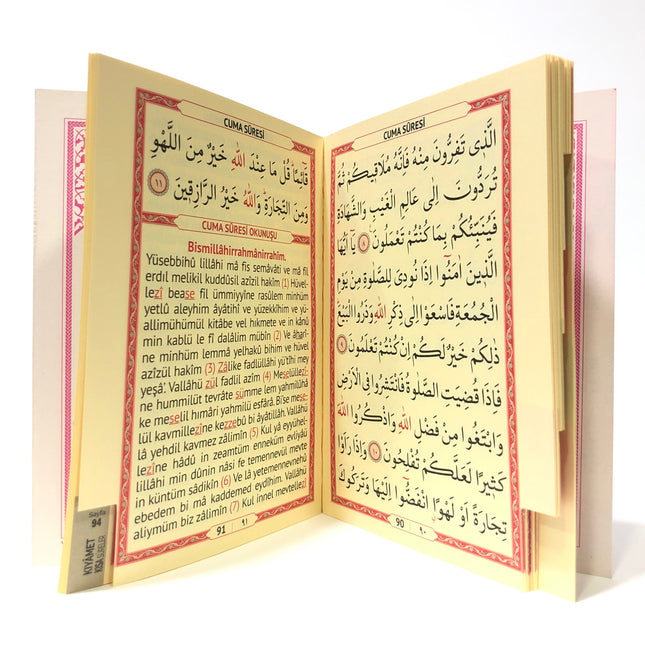 CUMA SÛRESİ
الَّذ۪ي تَفِرُّونَ مِنْهُ فَاِنَّهُ مُلَاق۪يكُمْ ثُمَّ
تُرَدُّونَ اِلٰى عَالِمِ الْغَيْبِ وَالشَّهَادَةِ
فَيُنَبِّئُكُمْ بِمَا كُنْتُمْ تَعْمَلُونَ ٨ يَٓا اَيُّهَا
الَّذ۪ينَ اٰمَنُٓوا اِذَا نُودِيَ لِلصَّلٰوةِ مِنْ يَوْمِ
الْجُمُعَةِ فَاسْعَوْا اِلٰى ذِكْرِ اللّٰهِ وَذَرُوا الْبَيْعَ
ذٰلِكُمْ خَيْرٌ لَكُمْ اِنْ كُنْتُمْ تَعْلَمُونَ ٩
فَاِذَا قُضِيَتِ الصَّلٰوةُ فَانْتَشِرُوا فِي الْاَرْضِ
وَابْتَغُوا مِنْ فَضْلِ اللّٰهِ وَاذْكُرُوا اللّٰهَ
كَث۪يرًا لَعَلَّكُمْ تُفْلِحُونَ ١٠ وَاِذَا رَاَوْا
تِجَارَةً اَوْ لَهْوًا انْفَضُّٓوا اِلَيْهَا وَتَرَكُوكَ
90 ٩٠
CUMA SÛRESİ
قَٓائِمًا قُلْ مَا عِنْدَ اللّٰهِ خَيْرٌ مِنَ اللَّهْوِ
وَمِنَ التِّجَارَةِ وَاللّٰهُ خَيْرُ الرَّازِق۪ينَ ١١
CUMA SÛRESİ OKUNUŞU
Bismillâhirrahmânirrahîm.
Yüsebbihû lillâhi mâ fis semâvâti ve mâ fil
erdıl melikil kuddûsil azîzil hakîm (1) Hüvel-
lezî bease fil ümmiyyîne rasûlem minhüm
yetlû aleyhim âyâtihî ve yüzekkîhim ve yü-
allimühümül kitâbe vel hikmete ve in kânû
min kablü le fî dalâlim mübîn (2) Ve âharî-
ne minhüm lemmâ yelhakû bihim ve hüvel
azîzül hakîm (3) Zâlike fadlüllâhi yü'tîhi mey
yeşâ'. Vallâhü zül fadlil azîm (4) Meselüllezî-
ne hummilüt tevrâte sümme lem yahmilûhâ
ke meselil hımâri yahmilü esfârâ. Bi'se mese-
lül kavmillezîne kezzebû bi âyâtillâh. Vallâhü
lâ yehdil kavmez zâlimîn (5) Kul yâ eyyühel-
lezîne hâdû in zeamtüm enneküm evliyâü
lillâhi min dûnin nâsi fe temennevül mevte
in küntüm sâdikîn (6) Ve lâ yetemennevnehû
ebedem bi mâ kaddemed eydîhim. Vallâhü
aliymüm biz zâlimîn (7) Kul innel mevtellezî
91 ٩١
Sayfa
94
KIYÂMET
KISA SÛRELER